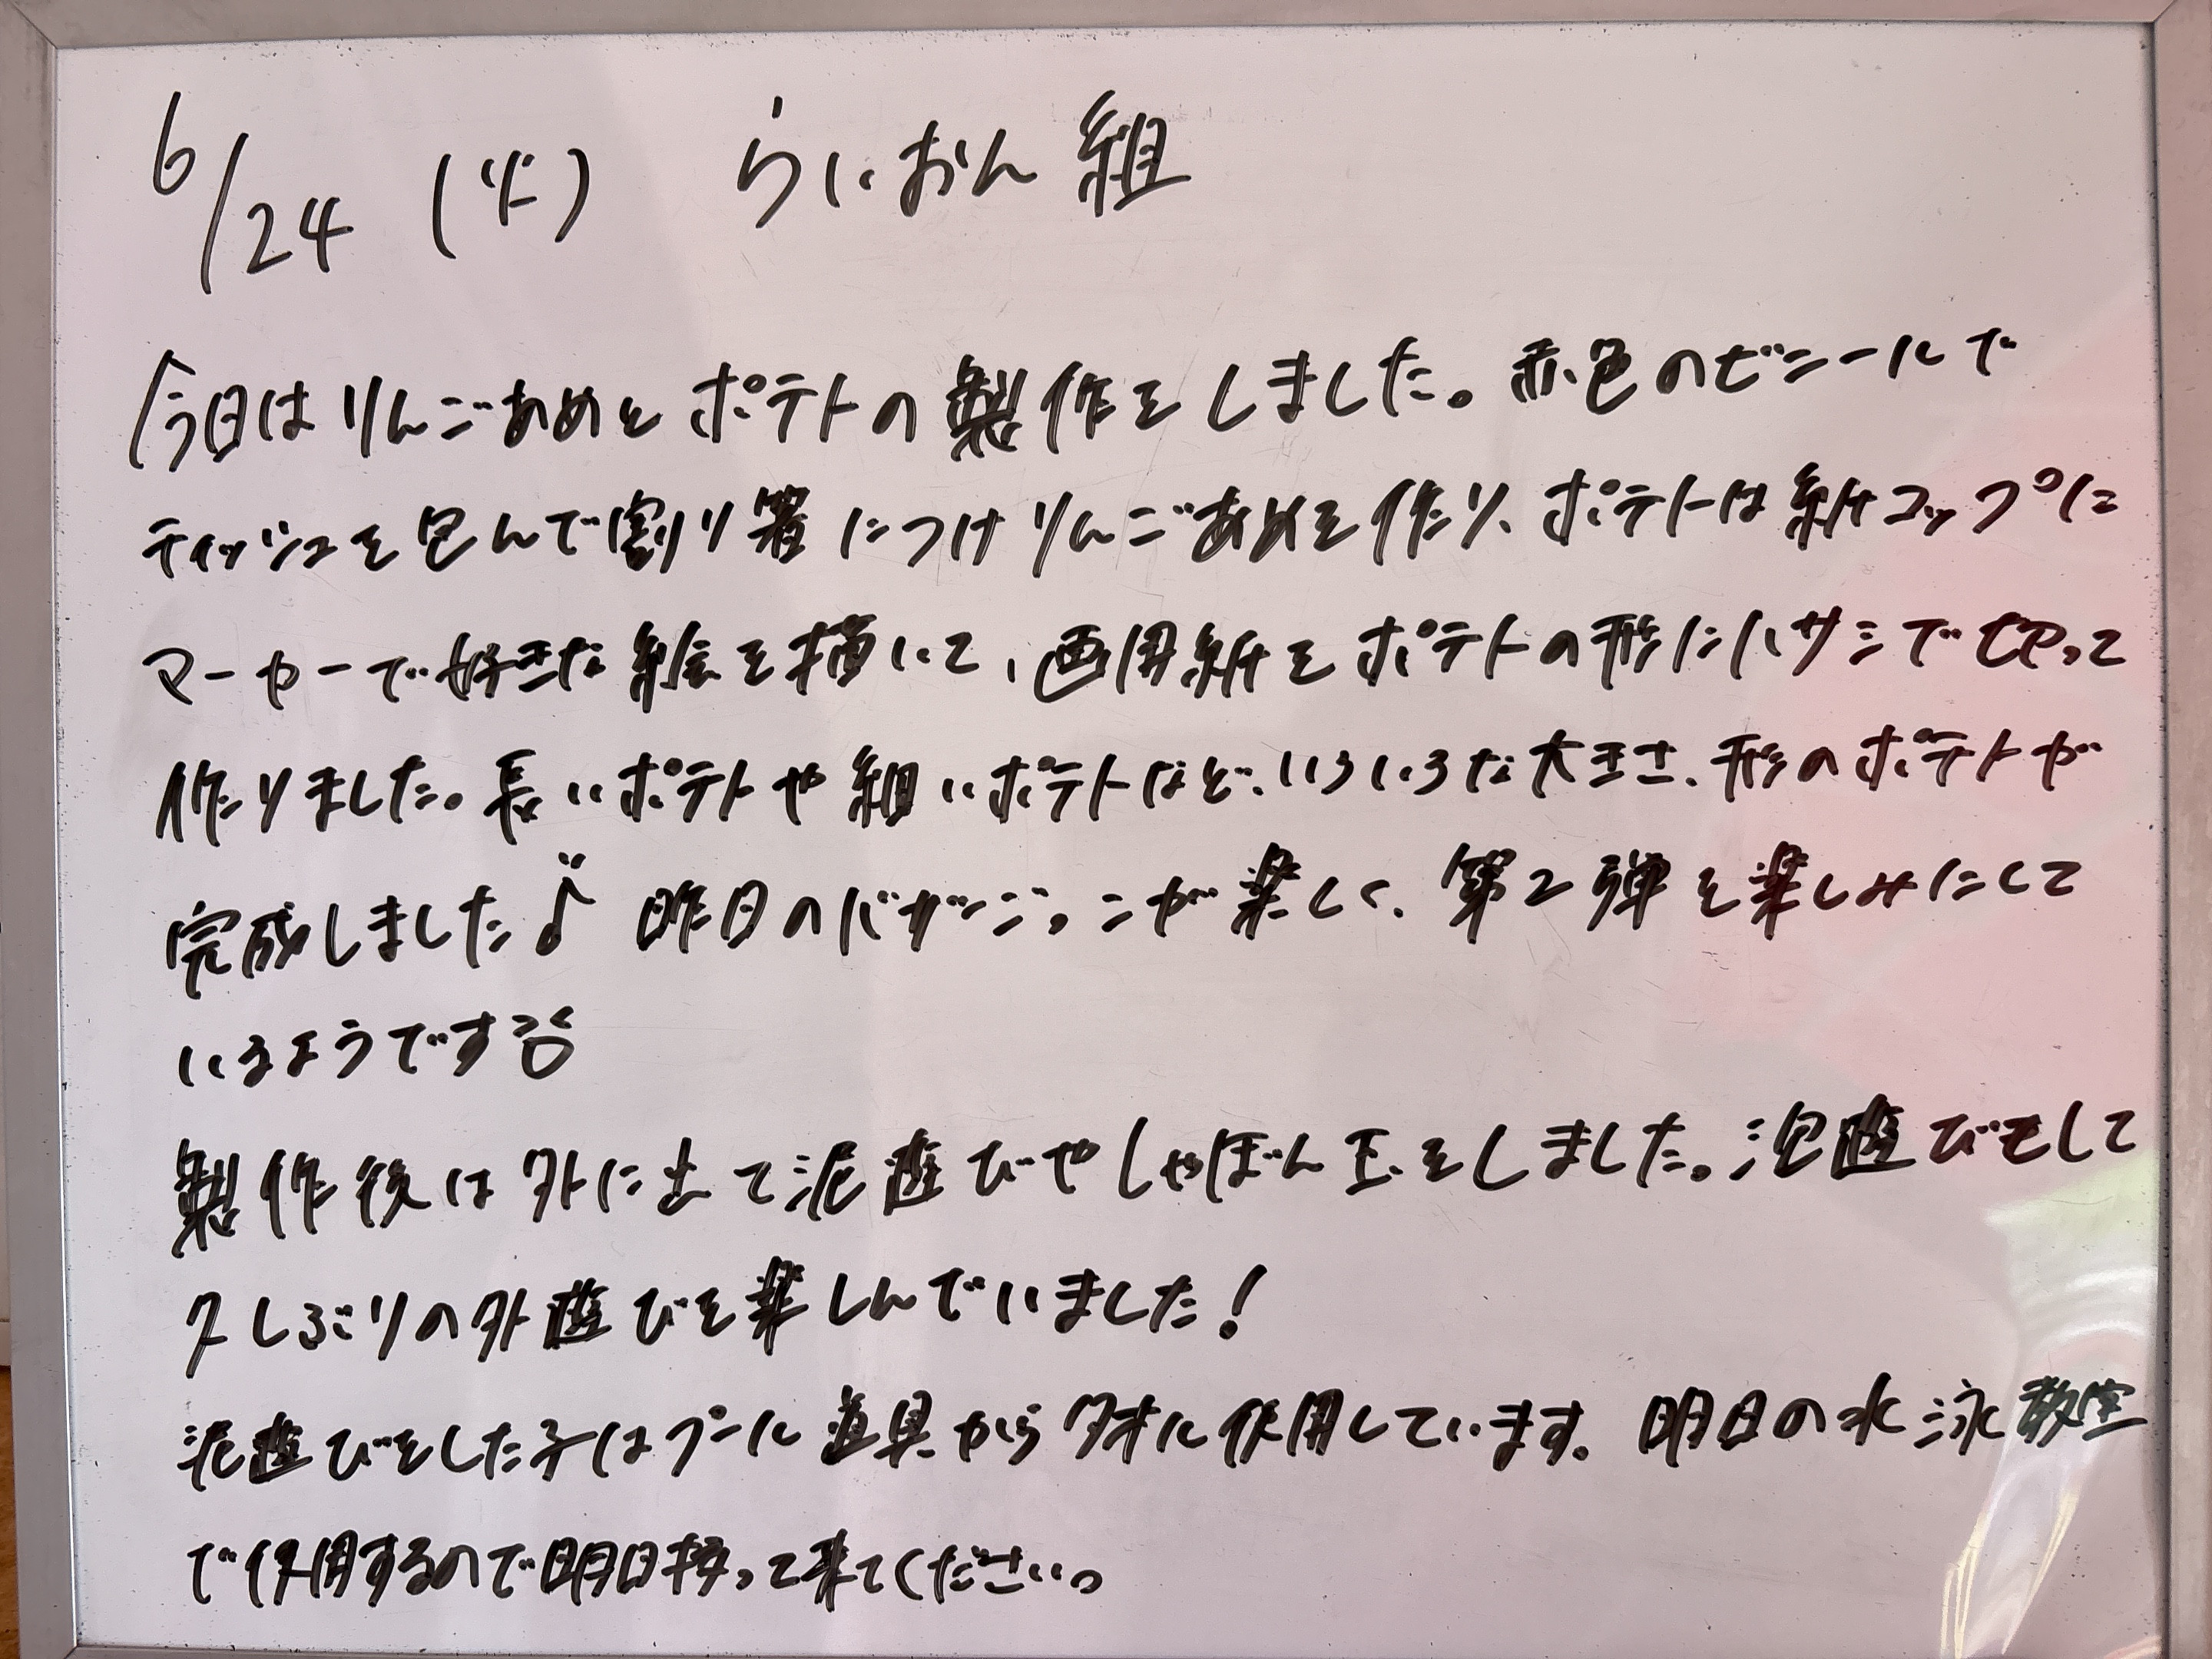 6/24 (火) らいおん組
今日はりんごあめとポテトの製作をしました。赤色のビニールで
ティッシュを包んで割り箸につけりんごあめを作り、ポテトは紙コップに
マーカーで好きな絵を描いて、画用紙をポテトの形にハサミで切って
作りました。長いポテトや細いポテトなど、いろいろな大きさ、形のポテトが
完成しました♪ 昨日のバザーごっこが楽しく、第2弾を楽しみにして
いるようです
製作後は外に出て泥遊びやしゃぼん玉をしました。泡遊びもして
久しぶりの外遊びを楽しんでいました!
泥遊びをした子はプール道具からタオル使用しています。明日の水泳教室
で使用するので明日持って来てください。